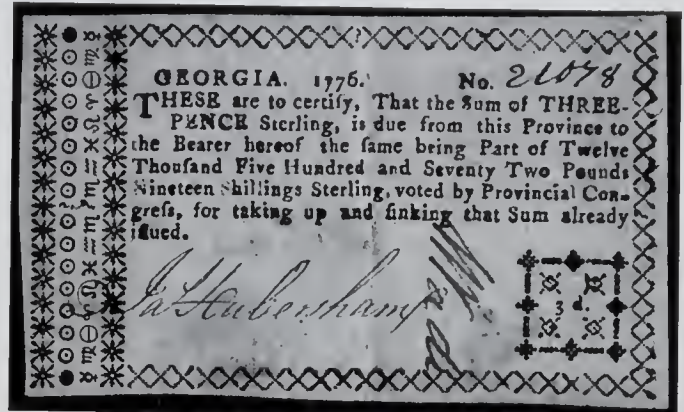 GEORGIA. 1776. No. 21078
THESE are to certify, That the Sum of THREE-
PENCE Sterling, is due from this Province to
the Bearer hereof the same being Part of Twelve
Thouſand Five Hundred and Seventy Two Pounds
Nineteen Shillings Sterling, voted by Provincial Con-
greſs, for taking up and ſinking that Sum already
iſſued.
Ja Habersham
3 d.